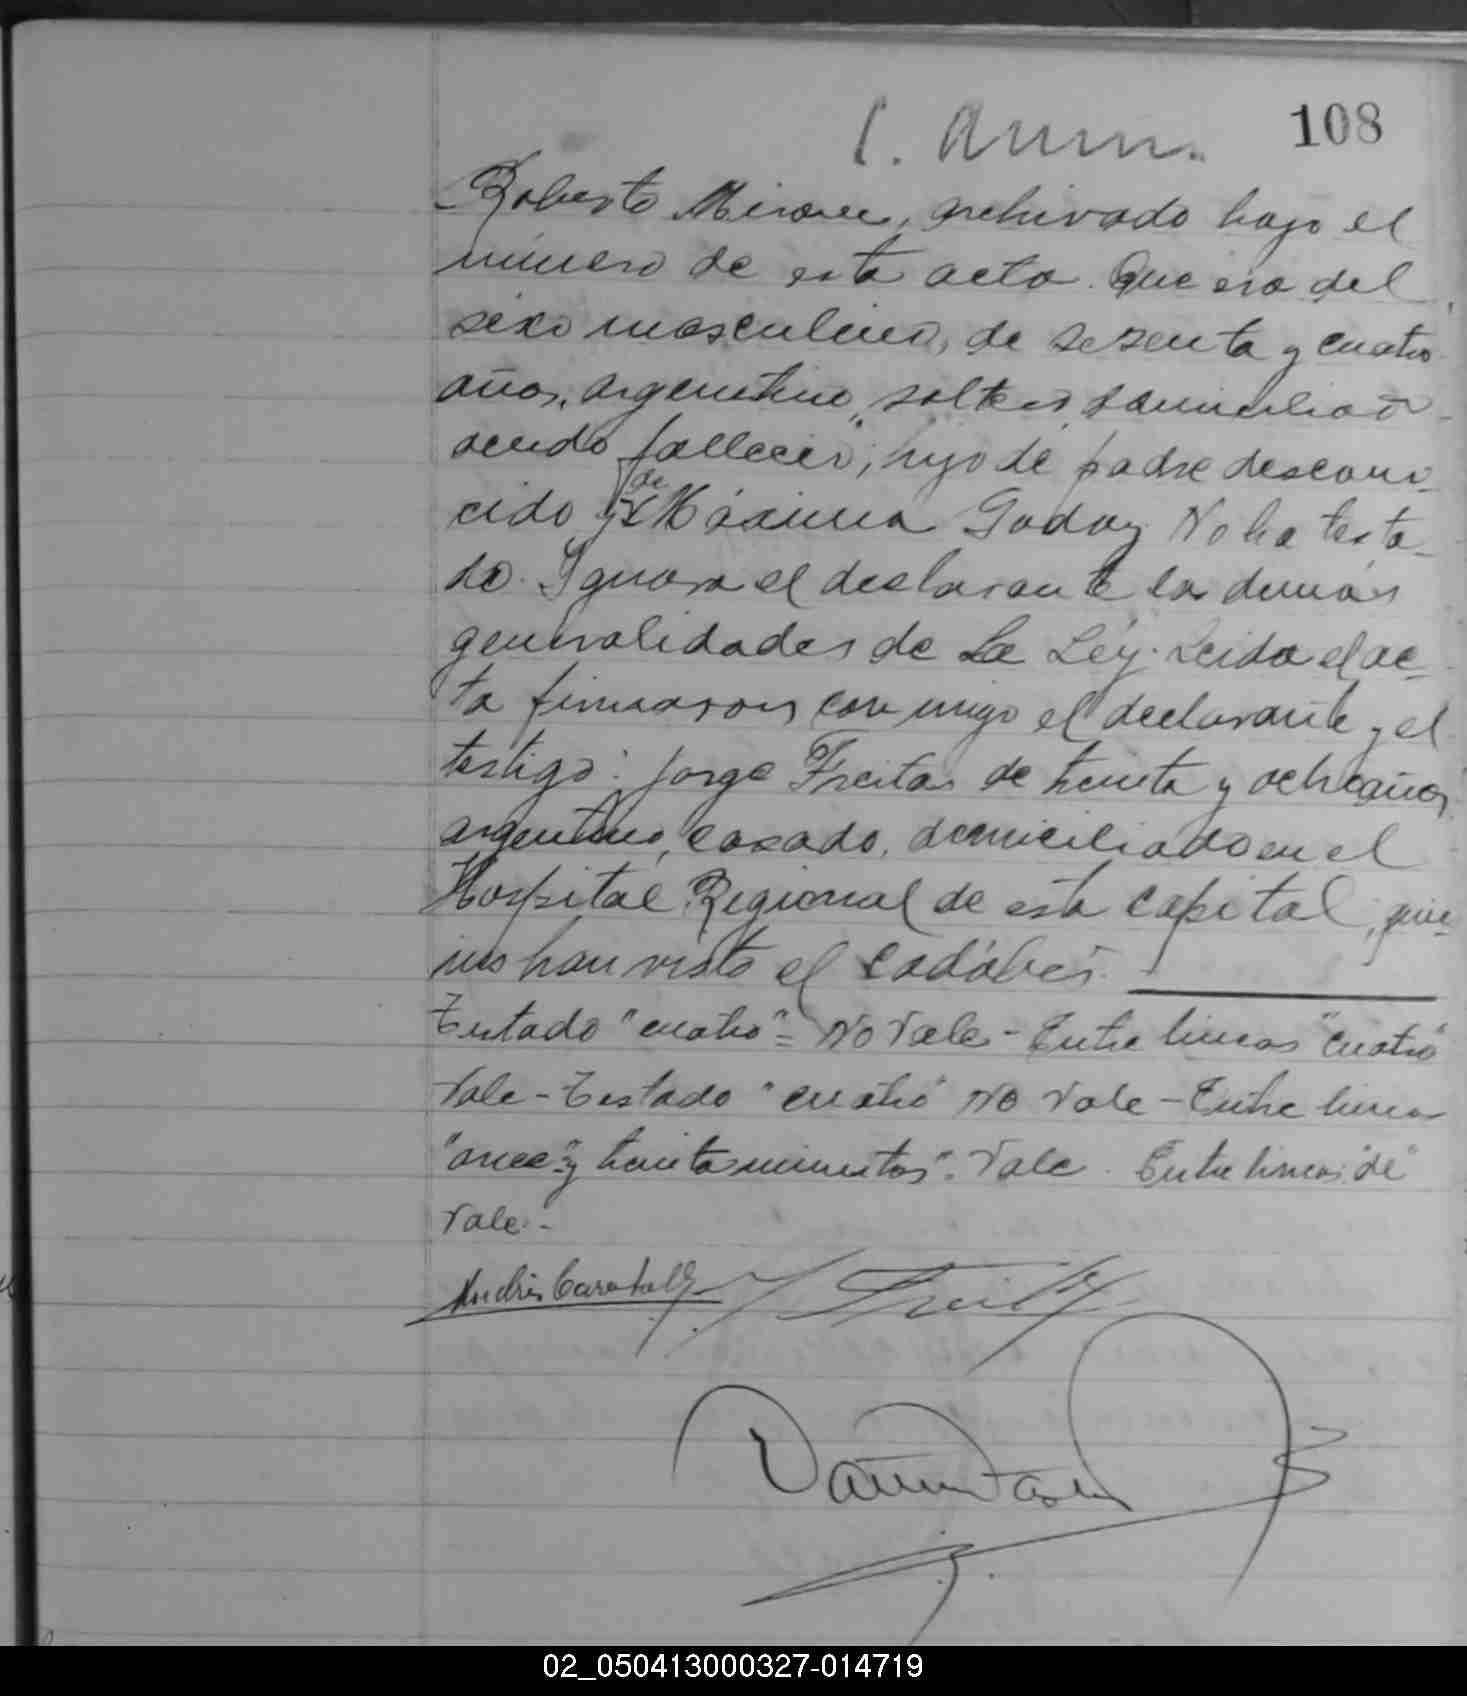 108
Roberto archivado bajo el
número de esta acta. Que era del
sexo masculino, de sesenta y cuatro
años, argentino, soltero, domiciliado
donde falleció; hijo de padre descono-
cido y de Máxima Godoy No ha testa-
do. Ignora el declarante las demás
generalidades de La Ley. Leída el ac-
ta firmaron conmigo el declarante y el
testigo: Jorge Freitas de treinta y ocho años
argentino, casado, domiciliado en el
Hospital Regional de esta capital, quie-
nes han visto el cadáber.
Testado "cuatro" = No Vale - Entre lineas "cuatro"
Vale - Testado "cuatro" No Vale - Entre lineas
"once y treinta minutos". Vale. Entre lineas "de"
Vale.-
Andrés